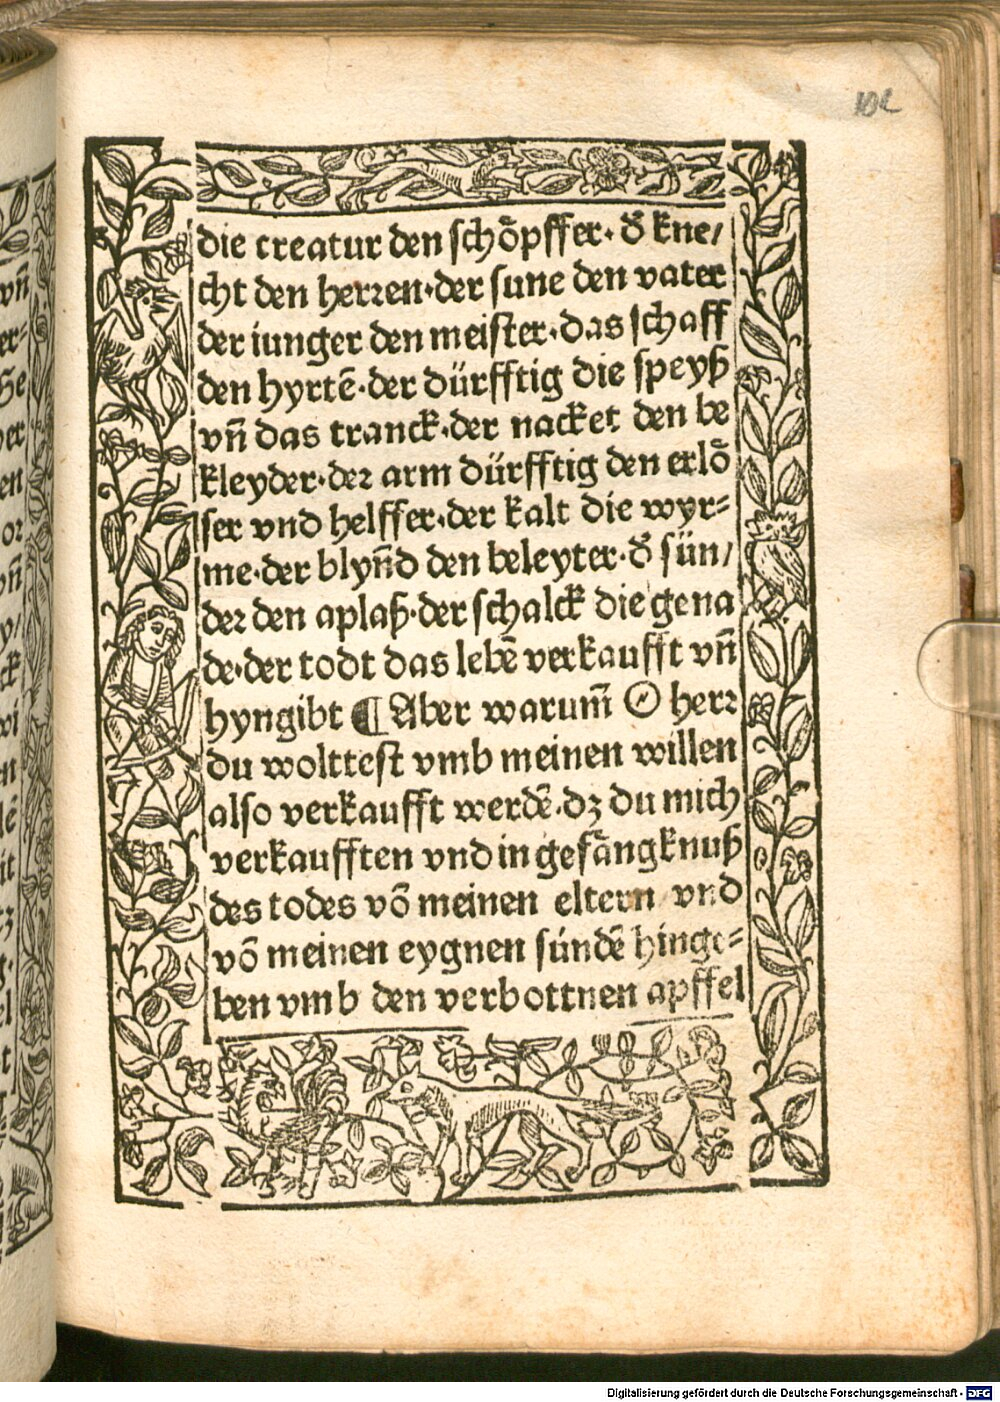 102
die creatur den schoͤpffer· dʾ kne/
cht den herꝛen·der sune den vater
der iunger den meister·das schaff
den hyrtē·der dürfftig die speyß
vn̄ das tranck·der nacket den be
kleyder·deꝛ arm dürfftig den erloͤ
ser vnd helffer·der kalt die wyr⸗
me·der blyn̄d den beleyter·dʾ sün/
deꝛ den aplaß·der schalck die gena
de·der todt das lebē verkaufft vn̄
hyngibt ¶ Aber warum̄ O herꝛ
du wolttest vmb meinen willen
also verkaufft werdē·dz du mich
verkaufften vnd in gefaͤngknuß
des todes vō meinen eltern vnd
vō meinen eygnen súndē hinge⸗
ben vmb den verbottnen apffel
Digitalisierung gefördert durch die Deutsche Forschungsgemeinschaft - DFG